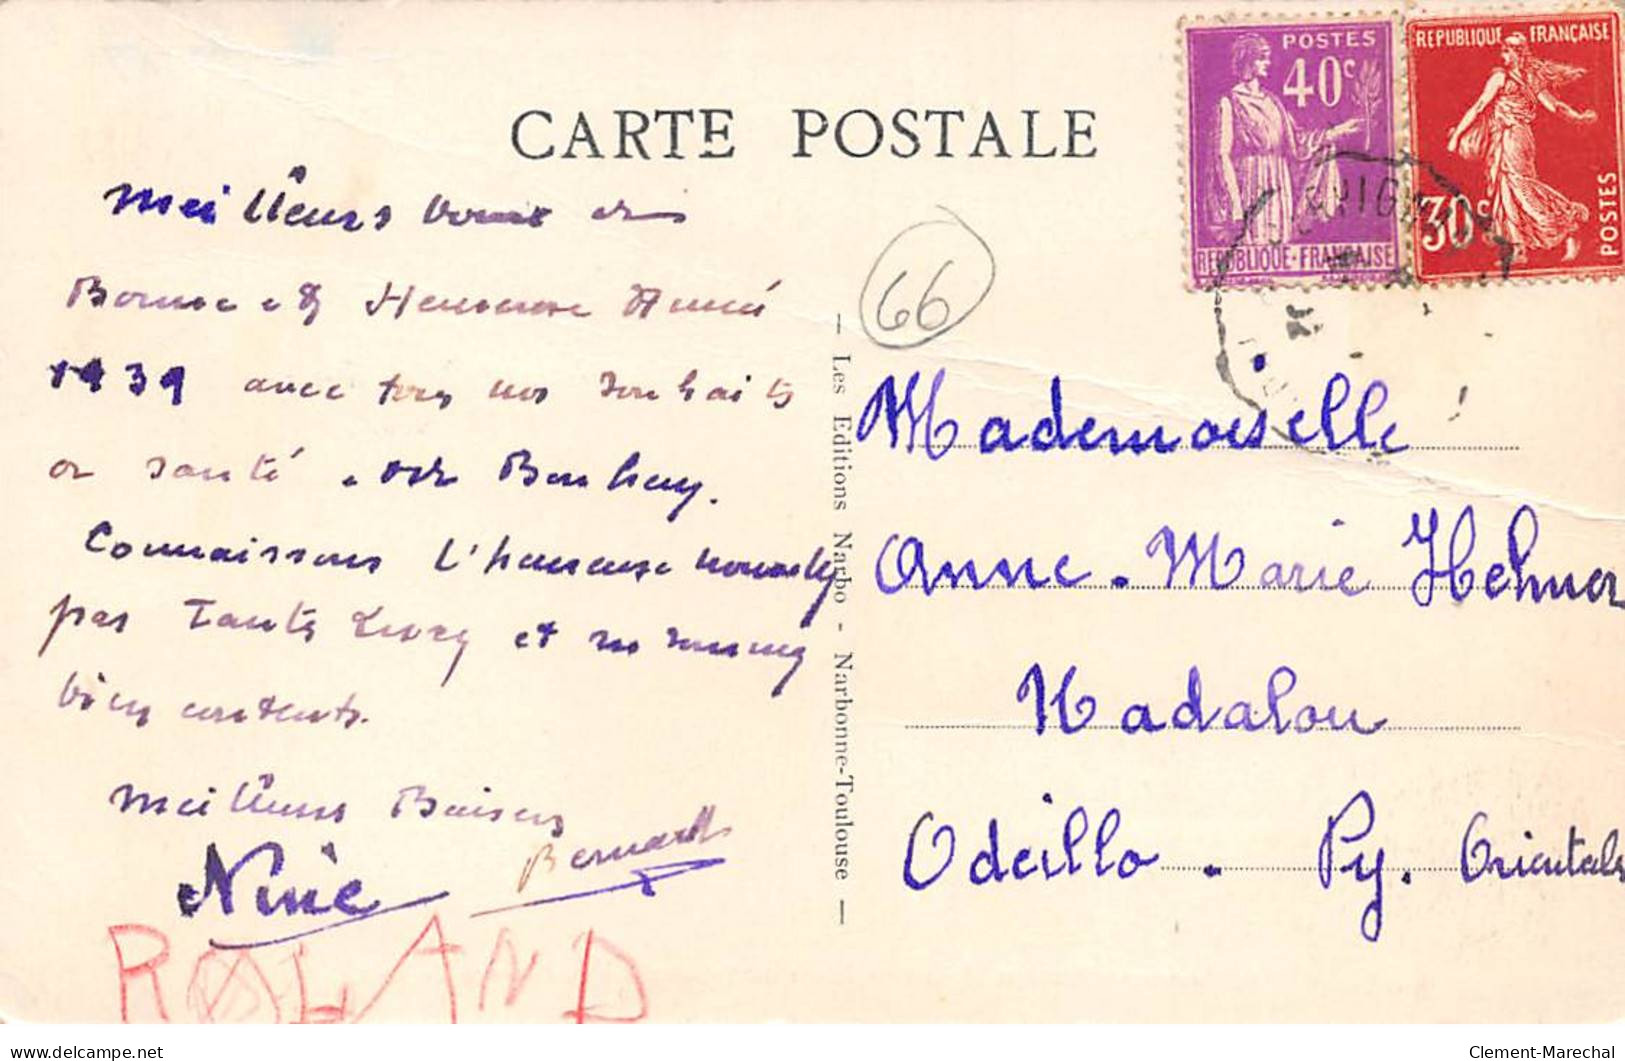 CARTE POSTALE
POSTES
40c
REPUBLIQUE FRANÇAISE
REPUBLIQUE FRANÇAISE
30c
POSTES
66
Meilleurs voeux de
Bonne et Heureuse Année
1939 avec tous nos souhaits
de santé, de Bonheur.
Connaissons l'heureuse nouvelle
par Tante et en sommes
bien contents.
Meilleurs Baisers
Nine Bernard
ROLAND
— Les Editions Narbo - Narbonne-Toulouse —
Mademoiselle
Anne-Marie
Nadalou
Odeillo. Py. Orientales
Clement-Marechal
delcampe.net